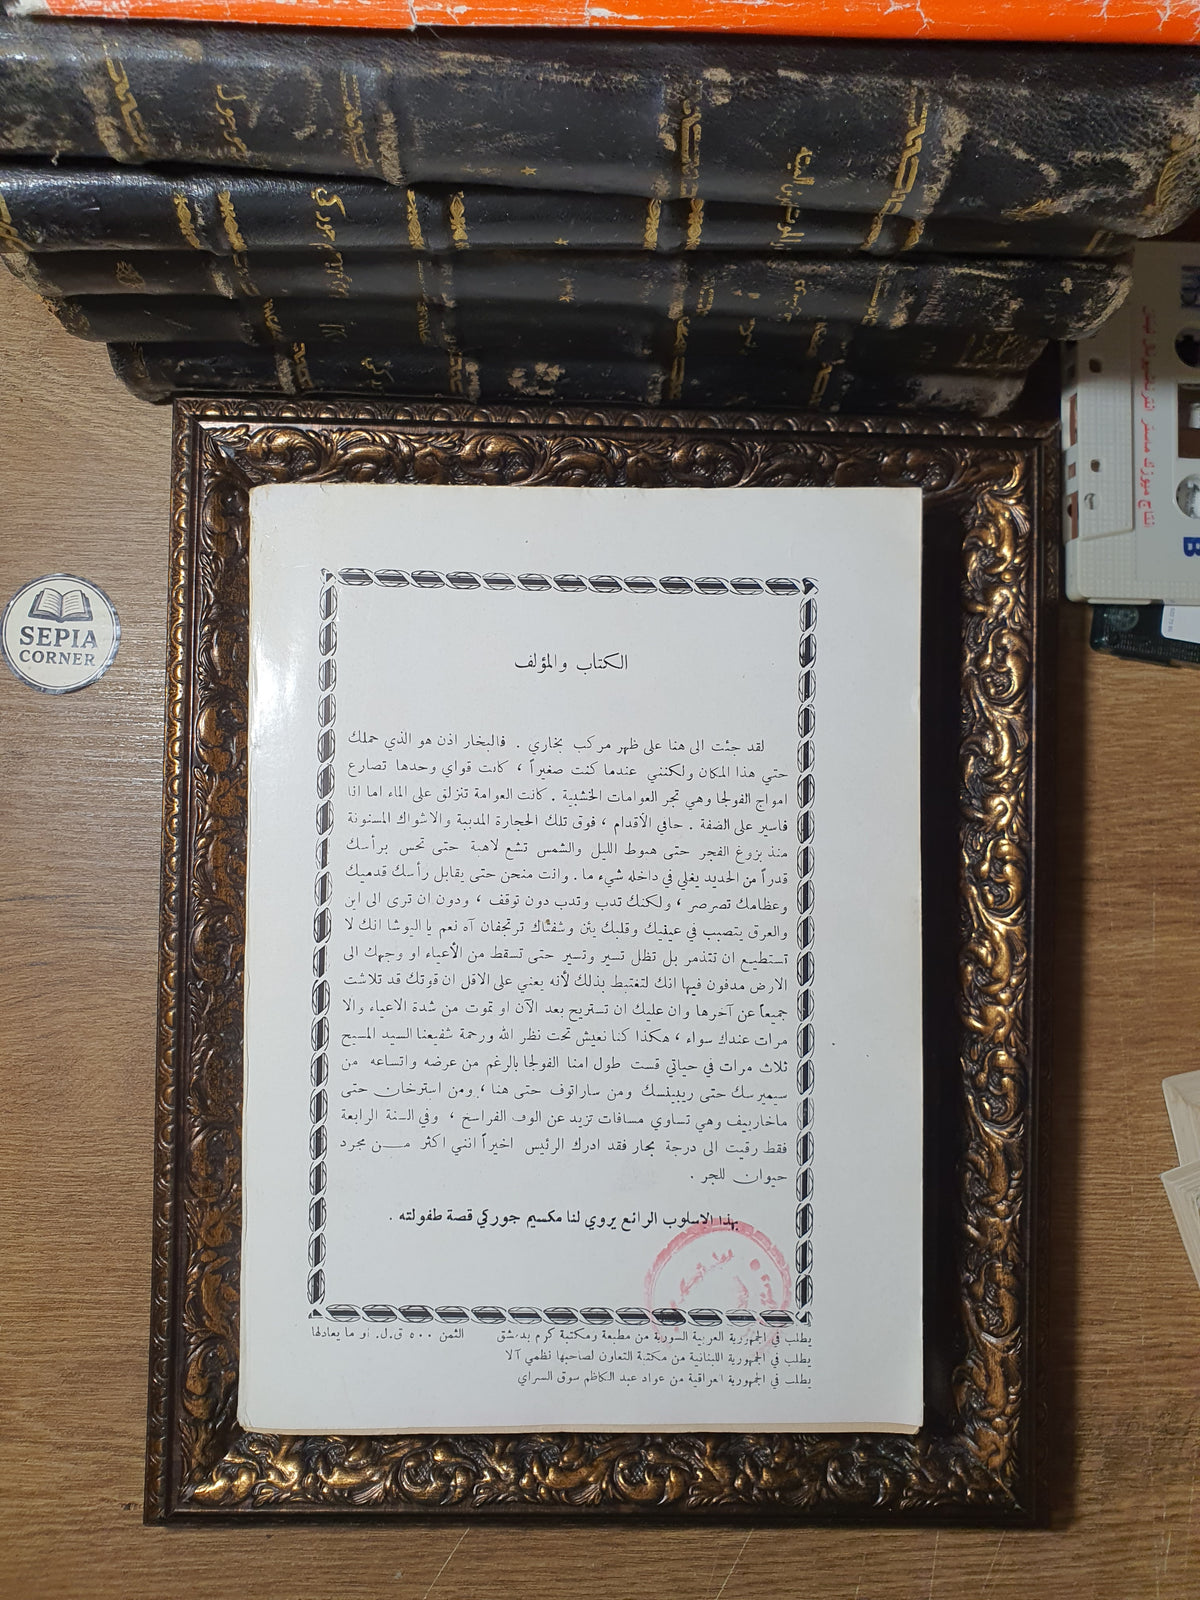 SEPIA
CORNER
انتاج ميوزك ماستر
B
الكتاب والمؤلف
لقد جئت الى هنا على ظهر مركب بخاري . فالبخار اذن هو الذي حملك
حتي هذا المكان ولكنني عندما كنت صغيراً ، كانت قواي وحدها تصارع
امواج الفولجا وهي تجر العوامات الخشبية . كانت العوامة تنزلق على الماء اما انا
فاسير على الضفة . حافي الأقدام ، فوق تلك الحجارة المدببة والاشواك المسنونة
منذ بزوغ الفجر حتى هبوط الليل والشمس تشع لاهبة حتى تحس برأسك
قدراً من الحديد يغلي في داخله شيء ما . وانت منحن حتى يقابل رأسك قدميك
وعظامك تصرصر ، ولكنك تدب وتدب دون توقف ، ودون ان ترى الى اين
والعرق يتصبب في عينيك وقلبك يئن وشفتاك ترتجفان آه نعم يا اليوشا انك لا
تستطيع ان تتذمر بل تظل تسير وتسير حتى تسقط من الأعياء او وجهك الى
الارض مدفون فيها انك لتغتبط بذلك لأنه يعني على الاقل ان قوتك قد تلاشت
جميعاً عن آخرها وان عليك ان تستريح بعد الآن او تموت من شدة الاعياء والا
مرات عندك سواء ، هكذا كنا نعيش تحت نظر الله ورحمة شفيعنا السيد المسيح
ثلاث مرات في حياتي قست طول امنا الفولجا بالرغم من عرضه واتساعه من
سيميرسك حتى ريبينسك ومن ساراتوف حتى هنا ، ومن استرخان حتى
ماخارييف وهي تساوي مسافات تزيد عن الوف الفراسخ ، وفي السنة الرابعة
فقط رقيت الى درجة بحار فقد ادرك الرئيس اخيراً انني اكثر من مجرد
حيوان للجر .
بهذا الاسلوب الرائع يروي لنا مكسيم جوركي قصة طفولته .
يطلب في الجمهورية العربية السورية من مطبعة ومكتبة كرم بدمشق الثمن ٥٠٠ ق.ل. او ما يعادلها
يطلب في الجمهورية اللبنانية من مكتبة التعاون لصاحبها نظمي آلا
يطلب في الجمهورية العراقية من عواد عبد الكاظم سوق السراي